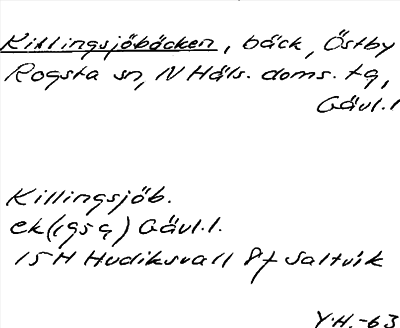 Killingsjöbäcken, bäck, Östby
Rogsta sn, N Häls. doms. tg,
Gävl.l
Killingsjöb.
ek(1954) Gävl.l.
15H Hudiksvall 8f Saltvik
Y.H.-63